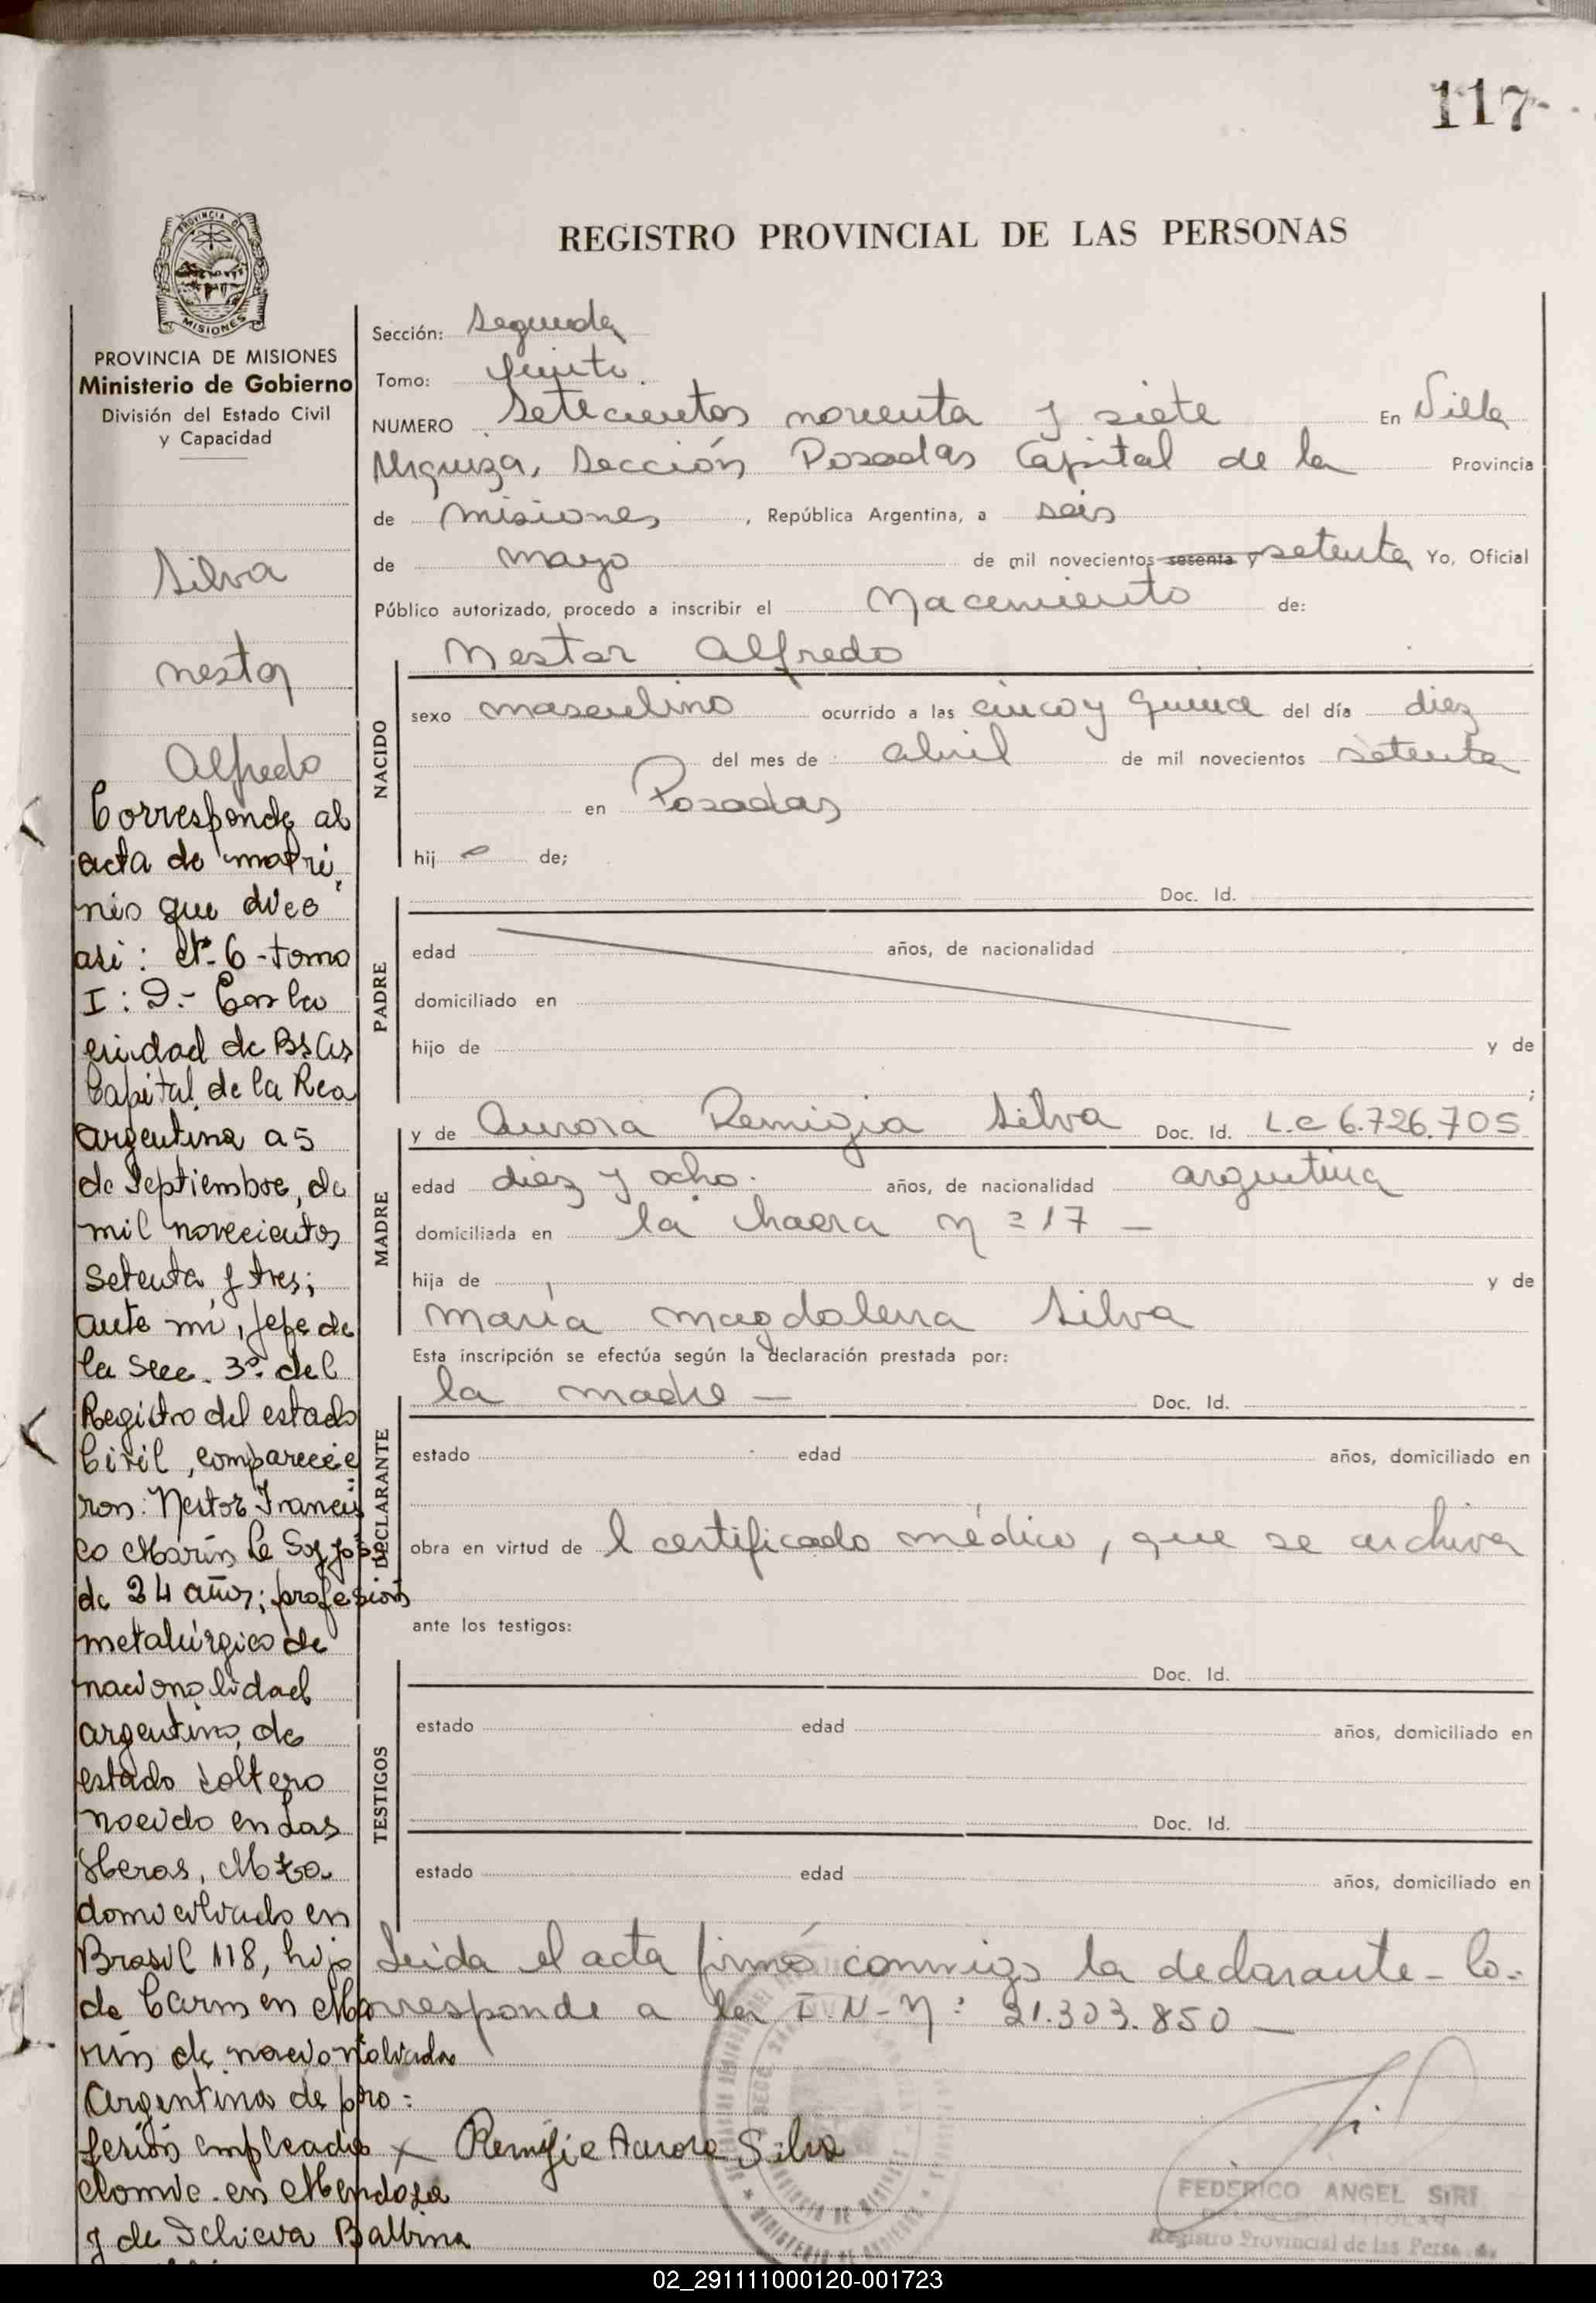 117
REGISTRO PROVINCIAL DE LAS PERSONAS
PROVINCIA DE
MISIONES
PROVINCIA DE MISIONES
Ministerio de Gobierno
División del Estado Civil
y Capacidad
Silva
Nestor
Alfredo
Corresponde al
acta de matri
nio que dice
asi: Nº 6 - tomo
I: D.- En la
ciudad de Bs As
Capital de la Rca
argentina a 5
de Septiembre, de
mil novecientos
setenta y tres;
ante mi, Jefe de
la Secc. 3º del
Registro del estado
Civil, comparecie
ron: Nestor Francis
co Marin
de 24 años; profesion
metalúrgico de
nacionalidad
argentino, de
estado soltero
nacido en Las
Heras, Mza
domiciliado en
Brasil 118, hijo
de Carmen Ma
rin de nacionalidad
Argentina de pro:
fesión empleado
domic. en Mendoza
y de Balbina
Sección: Segunda
Tomo: Quinto.
NUMERO Setecientos noventa y siete En Villa
Urquiza, Sección Posadas Capital de la Provincia
de misiones, República Argentina, a seis
de mayo de mil novecientos sesenta y setenta Yo, Oficial
Público autorizado, procedo a inscribir el Nacimiento de:
Nestor Alfredo
NACIDO
sexo masculino ocurrido a las cinco y quince del día diez
del mes de abril de mil novecientos setenta
en Posadas
hij o de;
Doc. Id.
PADRE
edad años, de nacionalidad
domiciliado en
hijo de y de
;
MADRE
y de Aurora Remigia Silva Doc. Id. L.C 6.726.705
edad diez y ocho. años, de nacionalidad argentina
domiciliada en la chacra Nº 17 —
hija de y de
María Magdalena Silva
Esta inscripción se efectúa según la declaración prestada por:
la madre — Doc. Id.
DECLARANTE
estado edad años, domiciliado en
obra en virtud de l certificado médico, que se archiva
ante los testigos:
Doc. Id.
TESTIGOS
estado edad años, domiciliado en
Doc. Id.
estado edad años, domiciliado en
Leida el acta firmó conmigo la declarante - Co-
rresponde a la I.N-Nº: 21.303.850 —
x Remigia Aurora Silva
FEDERICO ANGEL SIRI
Registro Provincial de las Perso
02_291111000120-001723